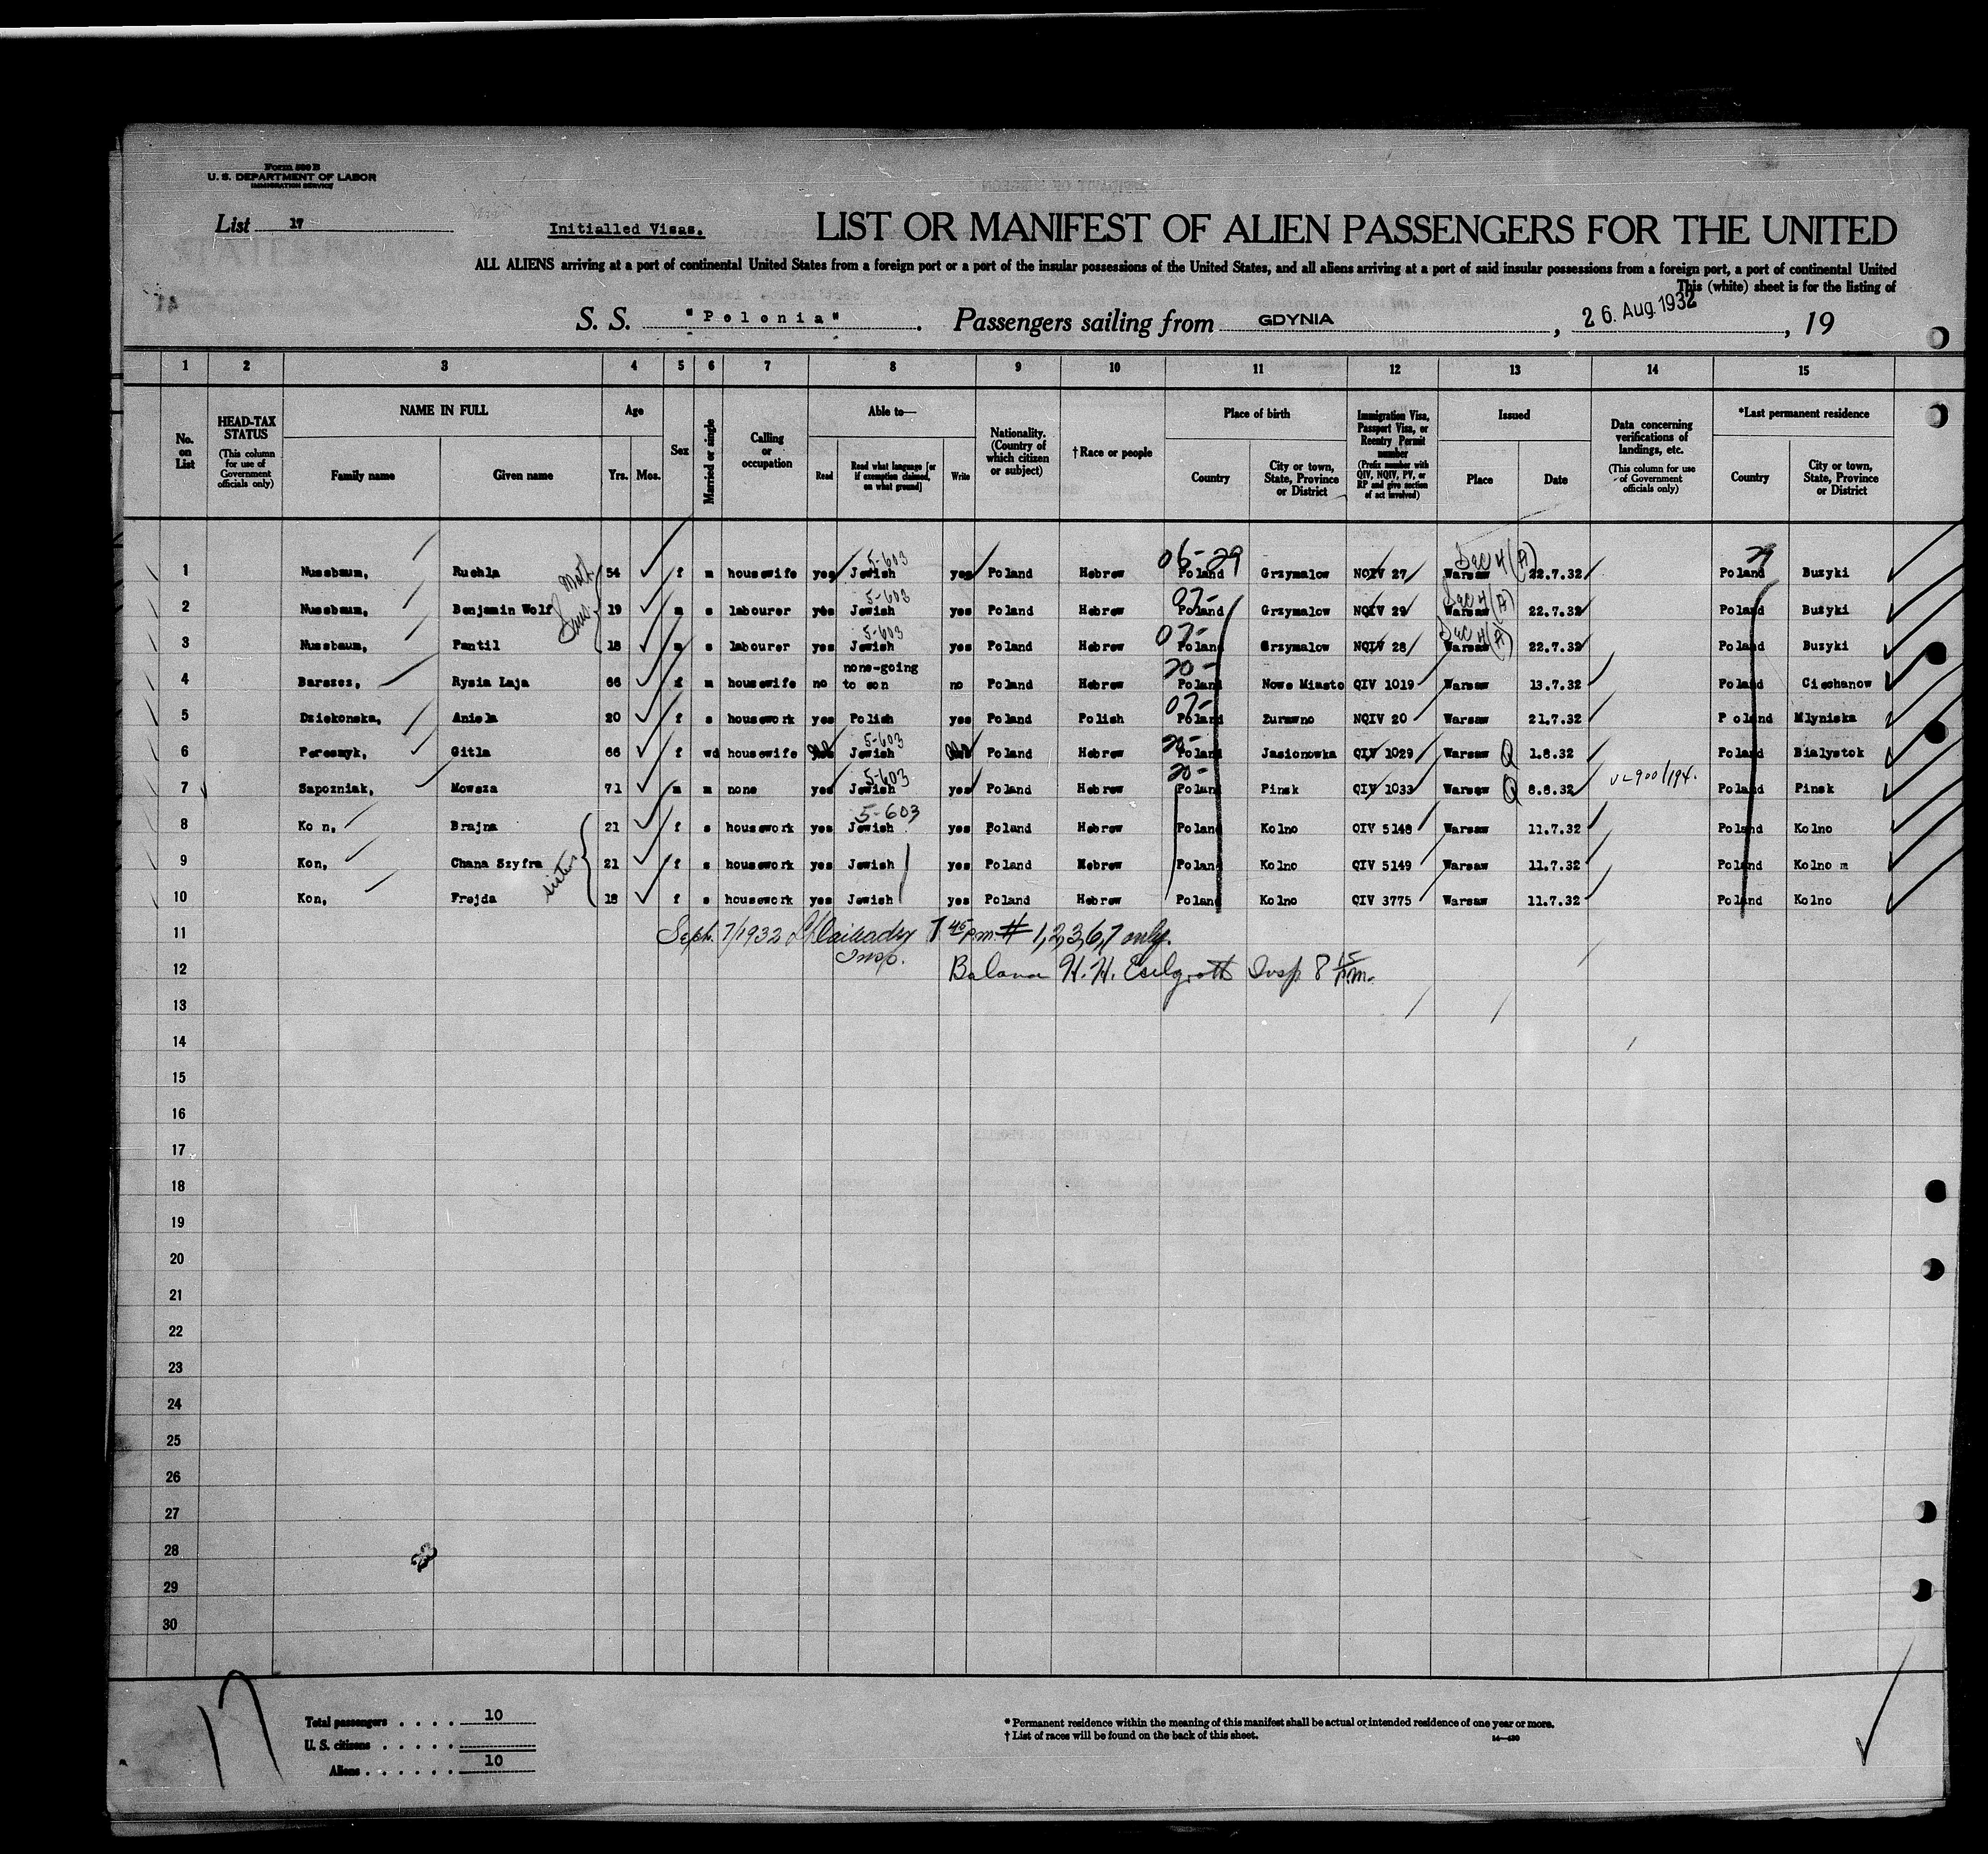 Form 500 B
U. S. DEPARTMENT OF LABOR
IMMIGRATION SERVICE
List 17
Initialled Visas.
LIST OR MANIFEST OF ALIEN PASSENGERS FOR THE UNITED
ALL ALIENS arriving at a port of continental United States from a foreign port or a port of the insular possessions of the United States, and all aliens arriving at a port of said insular possessions from a foreign port, a port of continental United
This (white) sheet is for the listing of
S. S. "Polonia". Passengers sailing from GDYNIA, 26. Aug. 1932, 19
1 2 3 4 5 6 7 8 9 10 11 12 13 14 15
No. on List
HEAD-TAX STATUS (This column for use of Government officials only)
NAME IN FULL Family name Given name
Age Yrs. Mos.
Sex
Married or single
Calling or occupation
Able to— Read Read what language [or if exemption claimed, on what ground] Write
Nationality. (Country of which citizen or subject)
†Race or people
Place of birth Country City or town, State, Province or District
Immigration Visa, Passport Visa, or Reentry Permit number (Prefix number with QIV, NQIV, PV, or RP and give section of act involved)
Issued Place Date
Data concerning verifications of landings, etc. (This column for use of Government officials only)
*Last permanent residence Country City or town, State, Province or District
1 Nussbaum, Ruchla 54 f m housewife yes Jewish 5-603 yes Poland Hebrew 06-29 Poland Grzymalow NQIV 27 Warsaw Sec 4 (A) 22.7.32 29 Poland Buzyki
2 Nussbaum, Benjamin Wolf 19 m s labourer yes Jewish 5-603 yes Poland Hebrew 07- Poland Grzymalow NQIV 29 Warsaw Sec 4 (A) 22.7.32 Poland Buzyki
3 Nussbaum, Pantil 18 m s labourer yes Jewish 5-603 yes Poland Hebrew 07- Poland Grzymalow NQIV 28 Warsaw Sec 4 (A) 22.7.32 Poland Buzyki
4 Barszcs, Rysia Laja 66 f m housewife no none-going to son no Poland Hebrew 20- Poland Nowe Miasto QIV 1019 Warsaw 13.7.32 Poland Ciechanow
5 Dziekonska, Aniela 20 f s housework yes Polish yes Poland Polish 07- Poland Zurawno NQIV 20 Warsaw 21.7.32 Poland Mlyniska
6 Peresmyk, Gitla 66 f wd housewife Jewish 5-603 Poland Hebrew 20- Poland Jasionowka QIV 1029 Warsaw Q 1.8.32 Poland Bialystok
7 Sapozniak, Mowsza 71 m m none yes Jewish 5-603 yes Poland Hebrew 20- Poland Pinsk QIV 1033 Warsaw Q 8.8.32 Poland Pinsk
8 Kon, Brajna 21 f s housework yes Jewish 5-603 yes Poland Hebrew Poland Kolno QIV 5148 Warsaw 11.7.32 Poland Kolno
9 Kon, Chana Szyfra sisters 21 f s housework yes Jewish yes Poland Hebrew Poland Kolno QIV 5149 Warsaw 11.7.32 Poland Kolno m
10 Kon, Frejda 18 f s housework yes Jewish yes Poland Hebrew Poland Kolno QIV 3775 Warsaw 11.7.32 Poland Kolno
11 Sept. 7/1932 7 45 p.m. # 1,2,3,6,7 only.
Insp.
12 H. H. Insp 8 15 P.M.
13
14
15
16
17
18
19
20
21
22
23
24
25
26
27
28
29
30
17
Total passengers . . . . 10
U. S. citizens . . . . .
Aliens . . . . . . 10
* Permanent residence within the meaning of this manifest shall be actual or intended residence of one year or more.
† List of races will be found on the back of this sheet.
14—430